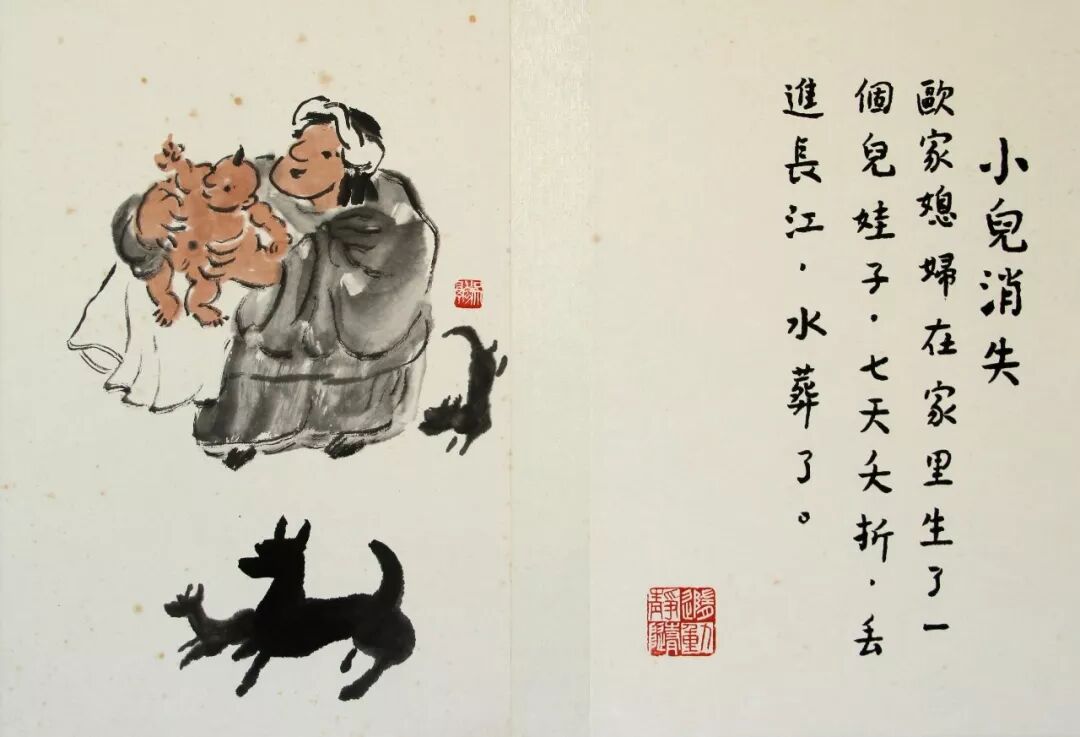 小兒消失
歐家媳婦在家里生了一
個兒娃子，七天夭折，丢
進長江，水葬了。